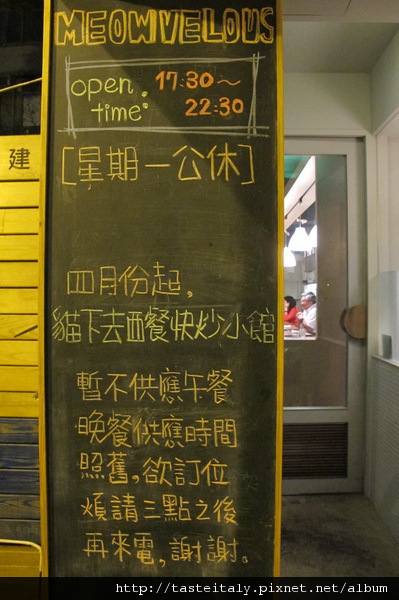 MEOWVELOUS
open time: 17:30～
22:30
[星期一公休]
建
四月份起,
貓下去西餐快炒小館
暫不供應午餐
晚餐供應時間
照舊,欲訂位
煩請三點之後
再來電,謝謝。
http://tasteitaly.pixnet.net/album